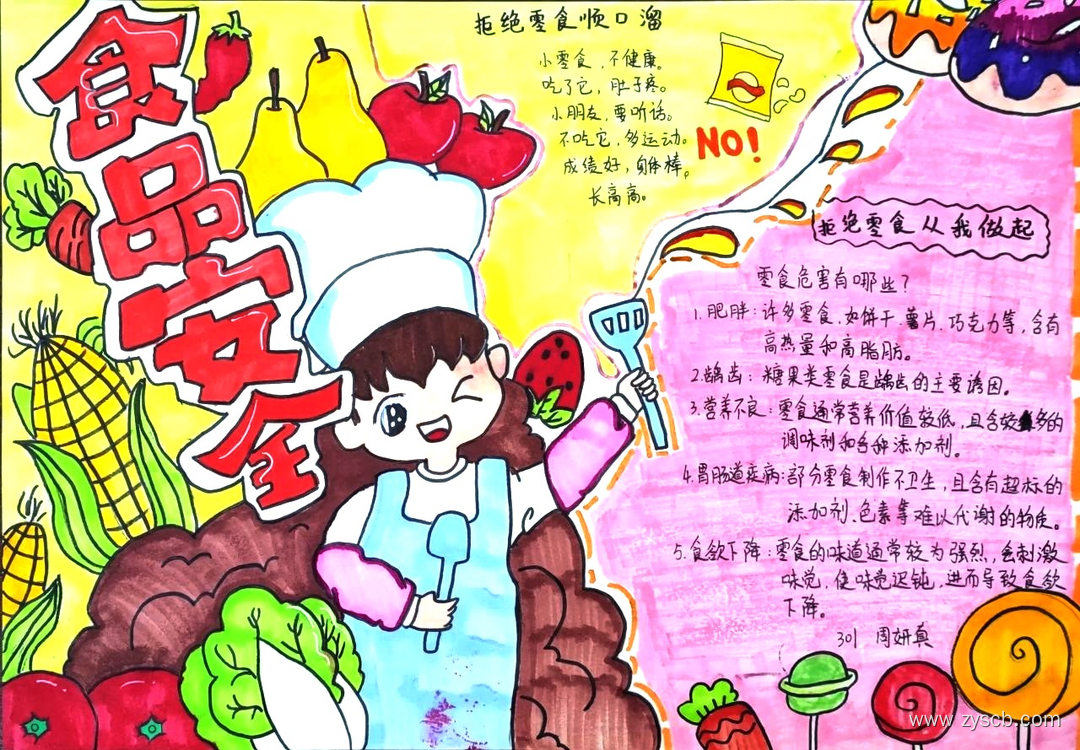 食品安全
拒绝零食顺口溜
小零食，不健康。
吃了它，肚子疼。
小朋友，要听话。
不吃它，多运动。
成绩好，身体棒。
长高高。
NO!
拒绝零食从我做起
零食危害有哪些？
1.肥胖：许多零食，如饼干、薯片、巧克力等，含有
高热量和高脂肪。
2.龋齿：糖果类零食是龋齿的主要诱因。
3.营养不良：零食通常营养价值较低，且含较多的
调味剂和各种添加剂。
4.胃肠道疾病：部分零食制作不卫生，且含有超标的
添加剂、色素等难以代谢的物质。
5.食欲下降：零食的味道通常较为强烈，会刺激
味觉，使味觉迟钝，进而导致食欲
下降。
301 周妍真
www.zyscb.com